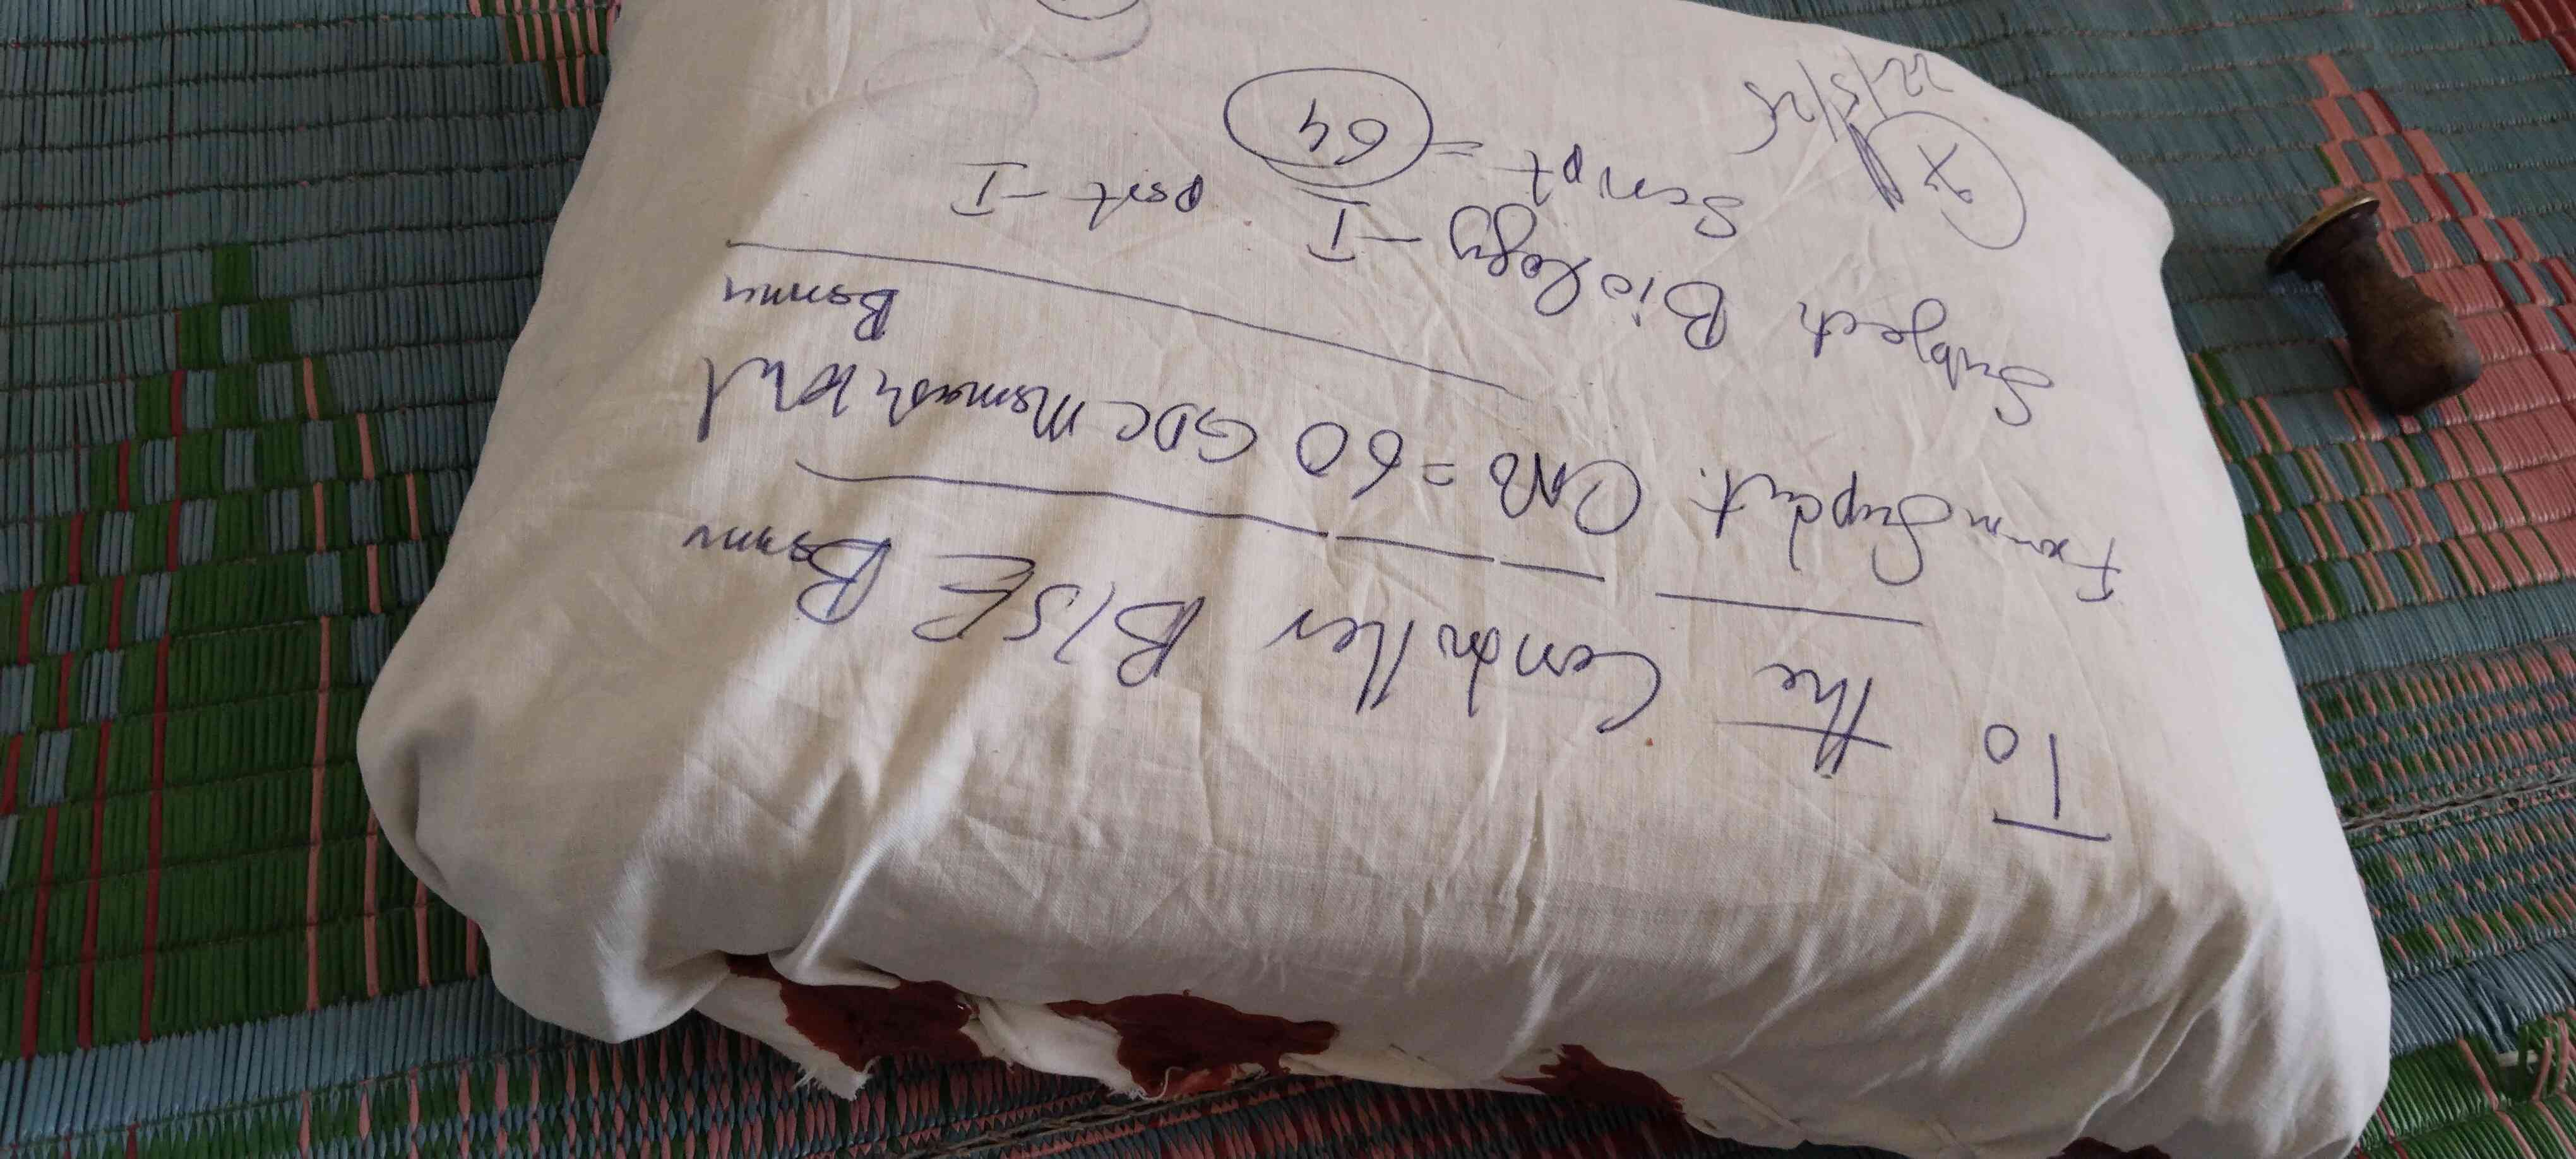 To
The Controller BISE Bannu
From Supdt. CNo = 60 GDC Mamash Khel
Bannu
Subject Biology - I part - I
Script = 64
22/5/25